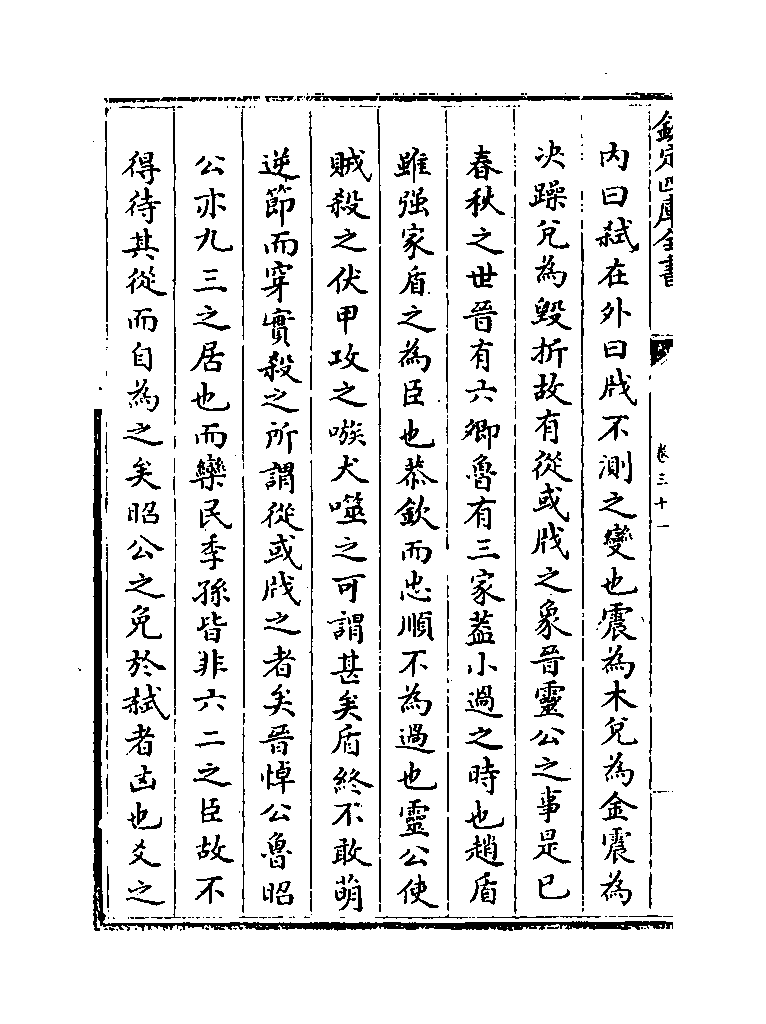 欽定四庫全書
卷三十一
內曰弑在外曰戕不測之變也震為木兌為金震為
决躁兌為毀折故有從或戕之象晉靈公之事是已
春秋之世晉有六卿魯有三家葢小過之時也趙盾
雖强家盾之為臣也恭欽而忠順不為過也靈公使
賊殺之伏甲攻之嗾犬噬之可謂甚矣盾終不敢萌
逆節而穿實殺之所謂從或戕之者矣晉悼公魯昭
公亦九三之居也而欒民季孫皆非六二之臣故不
得待其從而自為之矣昭公之免於弑者凶也爻之